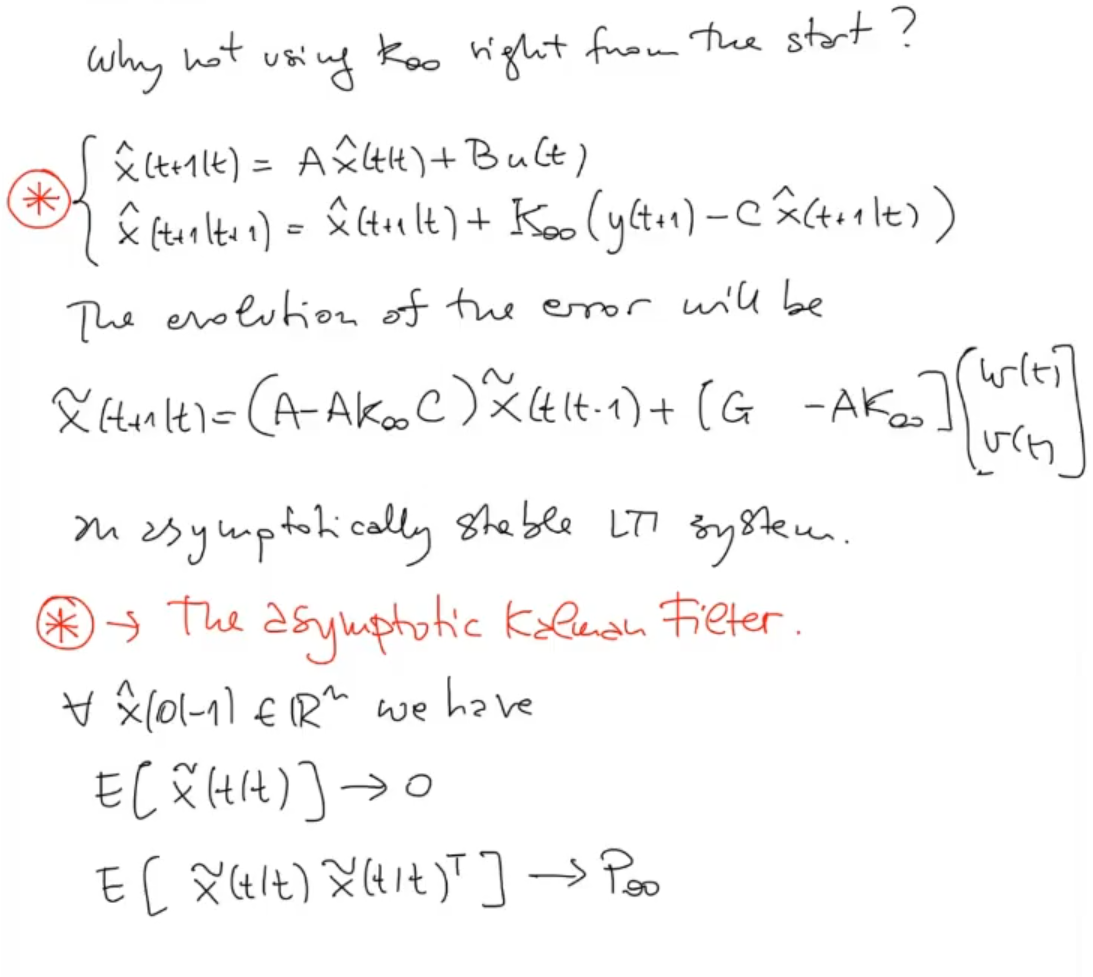 Why not using K∞ right from the start?
x̂(t+1|t) = A x̂(t|t) + B u(t)
* {
x̂(t+1|t+1) = x̂(t+1|t) + K∞ (y(t+1) - C x̂(t+1|t))
The evolution of the error will be
x̃(t+1|t) = (A - AK∞C) x̃(t|t-1) + [G -AK∞] [w(t) v(t)]
an asymptotically stable LTI system.
* → The asymptotic Kalman Filter.
∀ x̂(0|-1) ∈ ℝⁿ we have
E[x̃(t|t)] → 0
E[x̃(t|t) x̃(t|t)ᵀ] → P∞